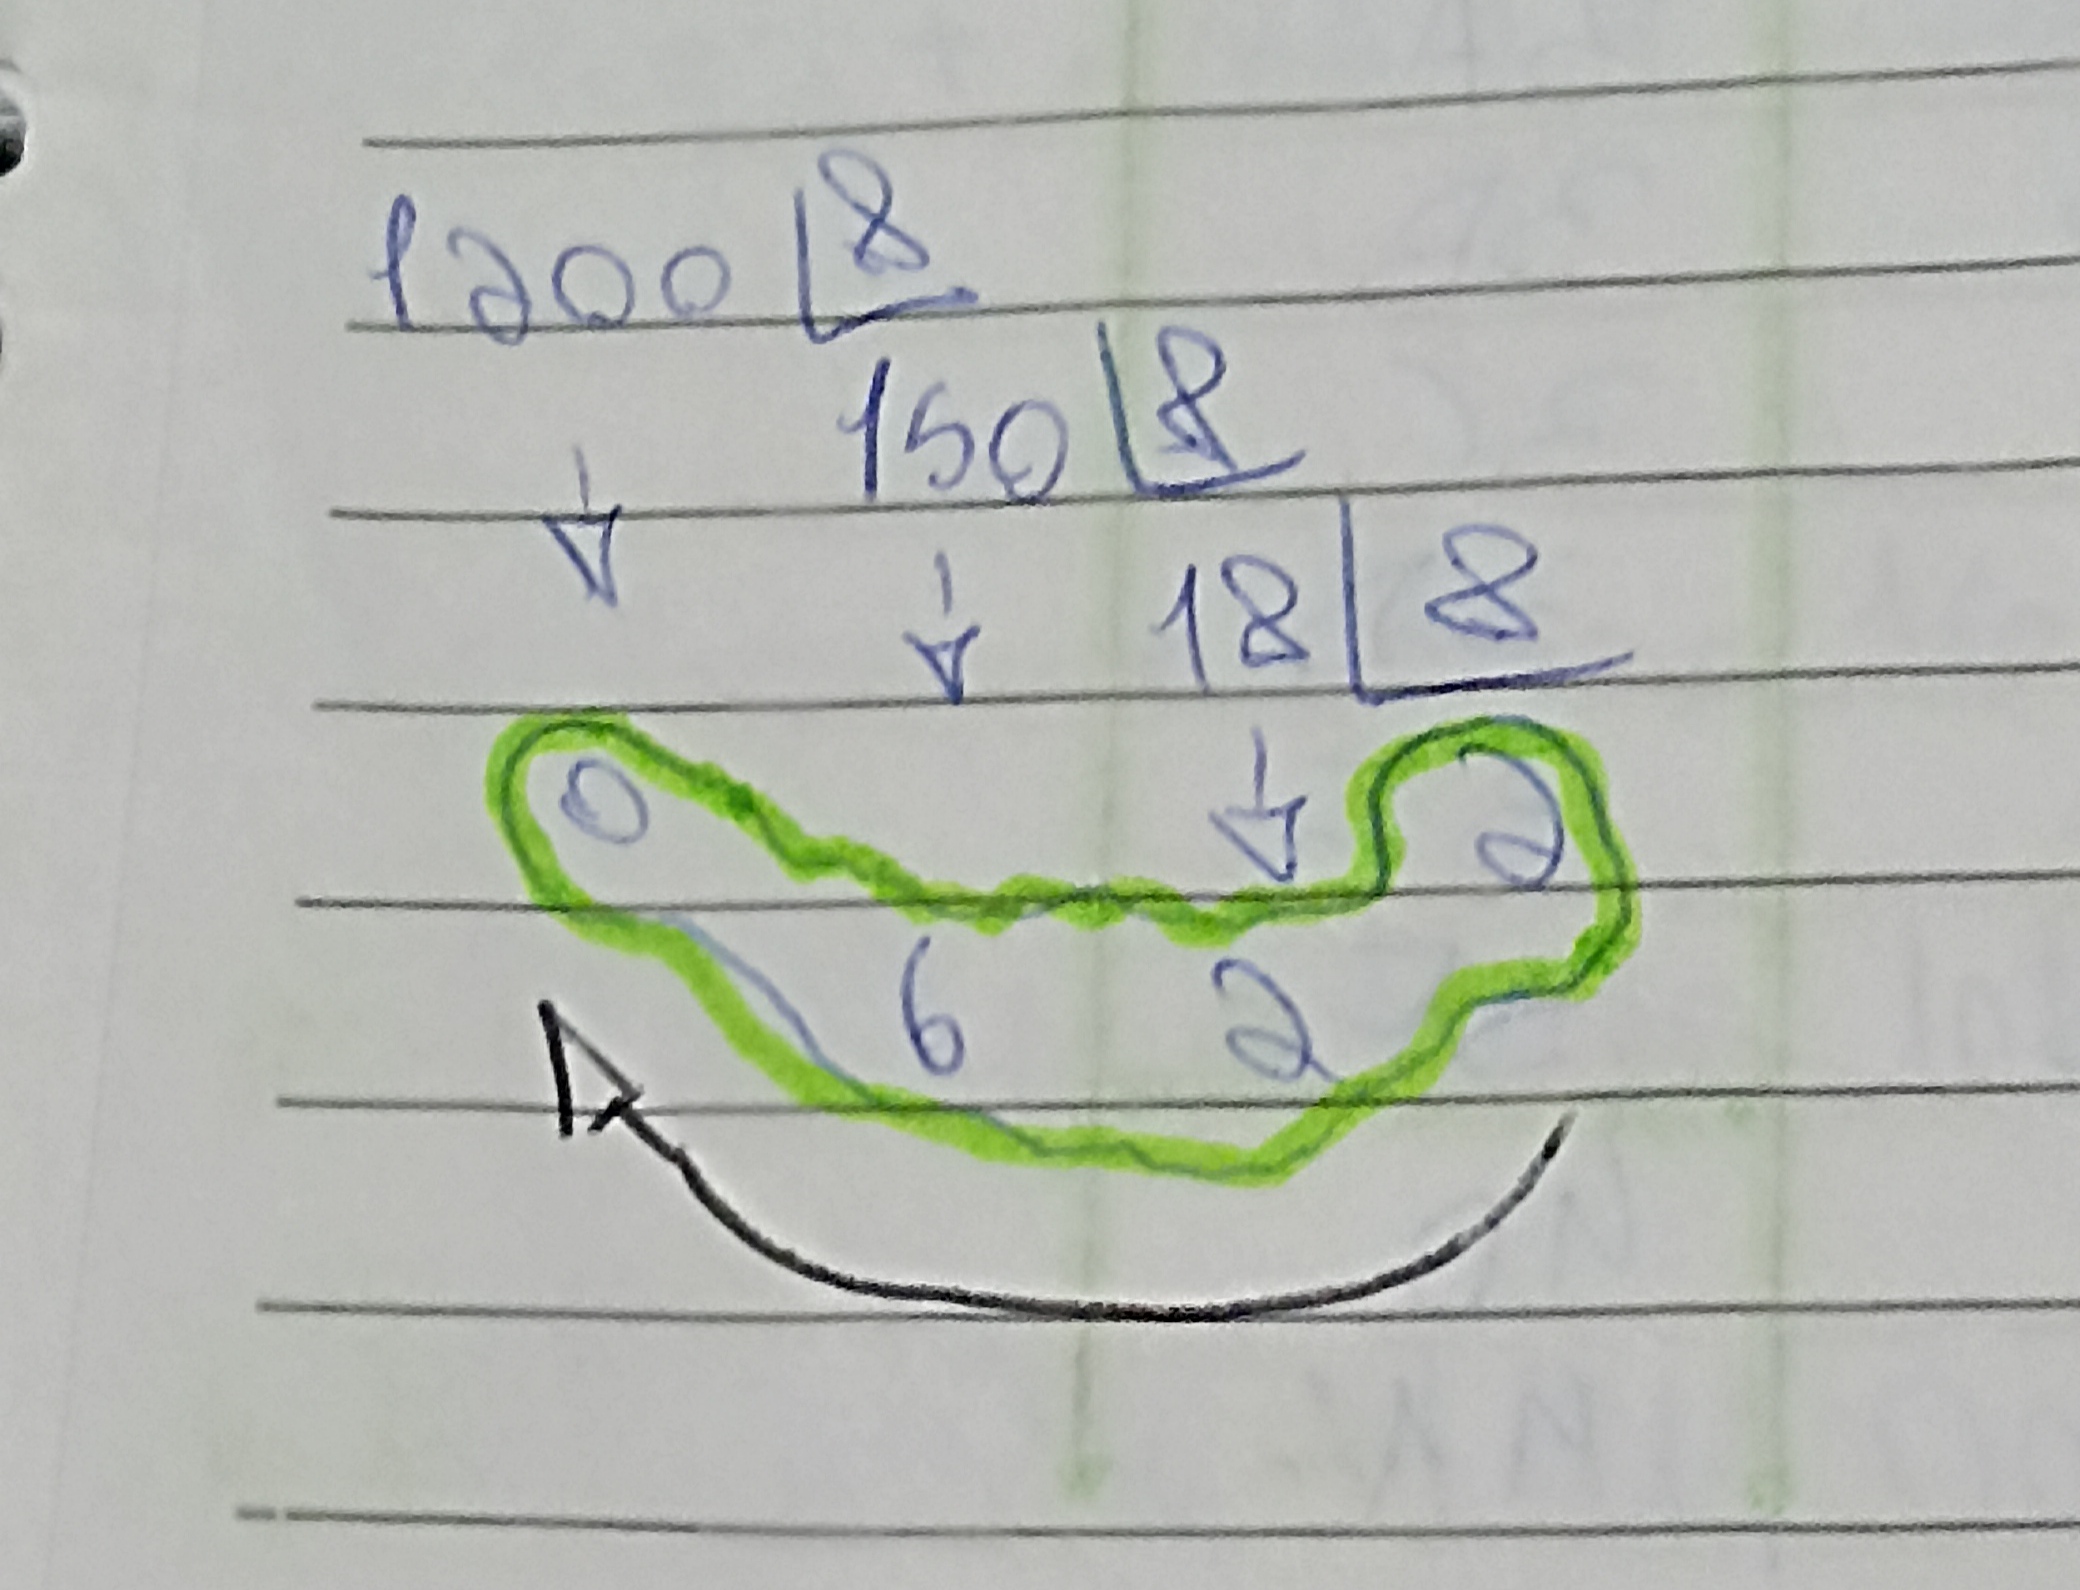 1200 8
150 8
18 8
0 2
6 2